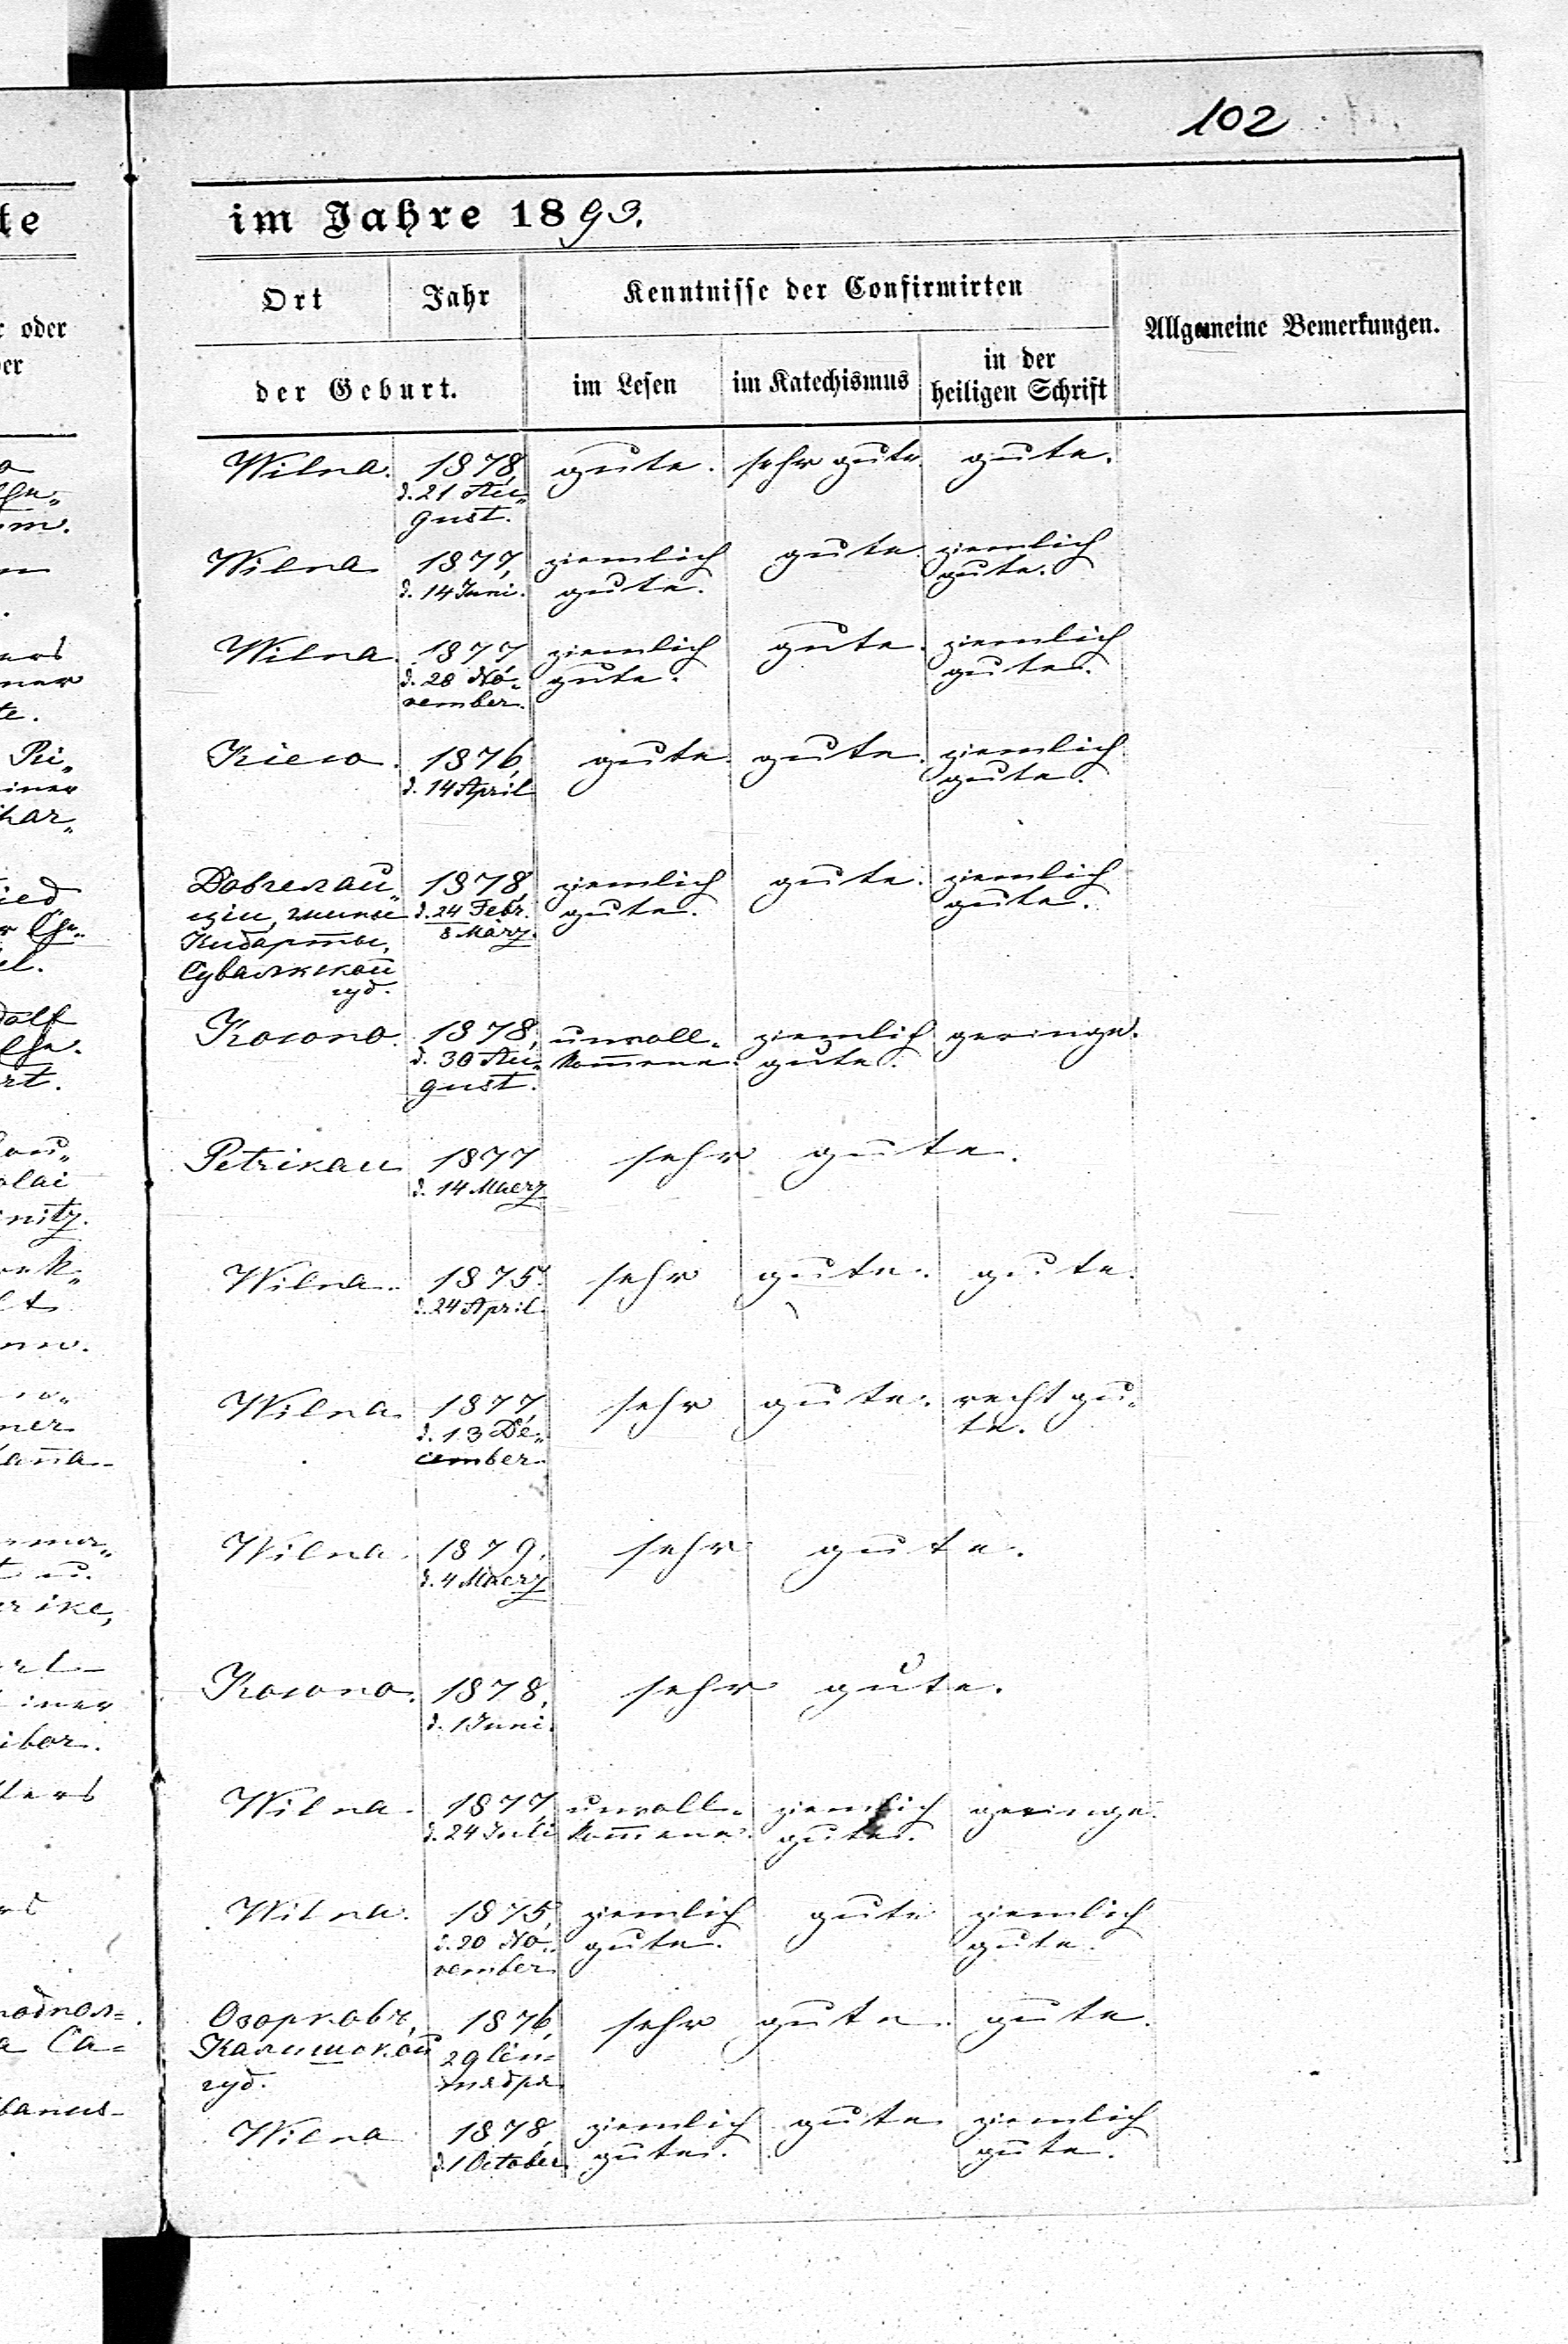 102
im Jahre 1893.
Ort Jahr Kenntnisse der Confirmirten Allgemeine Bemerkungen.
der Geburt. im Lesen im Katechismus in der heiligen Schrift
Wilna. 1878, gute. sehr gute. gute.
d. 21 Au„
gust.
Wilna 1877, ziemlich gute ziemlich
d. 14 Juni. gute. gute.
Wilna. 1877 ziemlich gute. ziemlich
d. 28 No„ gute. gute.
vember.
Kiew. 1876, gute gute. ziemlich
d. 14 April gute.
1878, ziemlich gute. ziemlich
гмины d. 24 Febr. gute. gute.
Кибарты, 8 März.
Сувалкской
губ.
Kowno. 1878, unvoll„ ziemlich geringe.
d. 30 Au„ kom̄ene. gute.
gust.
Petrikau 1877 sehr gute.
d. 14 Maerz
Wilna. 1875. sehr gute. gute.
d. 24 April.
Wilna. 1877, sehr gute. recht gu„
d. 13 De„ te.
cember.
Wilna. 1879. sehr gute.
d. 4 Maerz
Kowno. 1878, sehr gute.
d. 1 Juni.
Wilna. 1877, unvoll„ ziemlich geringe.
d. 24 Juli kom̄ene. gute.
Wilna. 1875, ziemlich gute ziemlich
d. 20 No„ gute. gute.
vember
Озорковъ, 1876, sehr gute. gute.
Калишской 29 Сен=
губ. тября
Wilna 1878, ziemlich gute ziemlich
d. 1 October gute. gute.